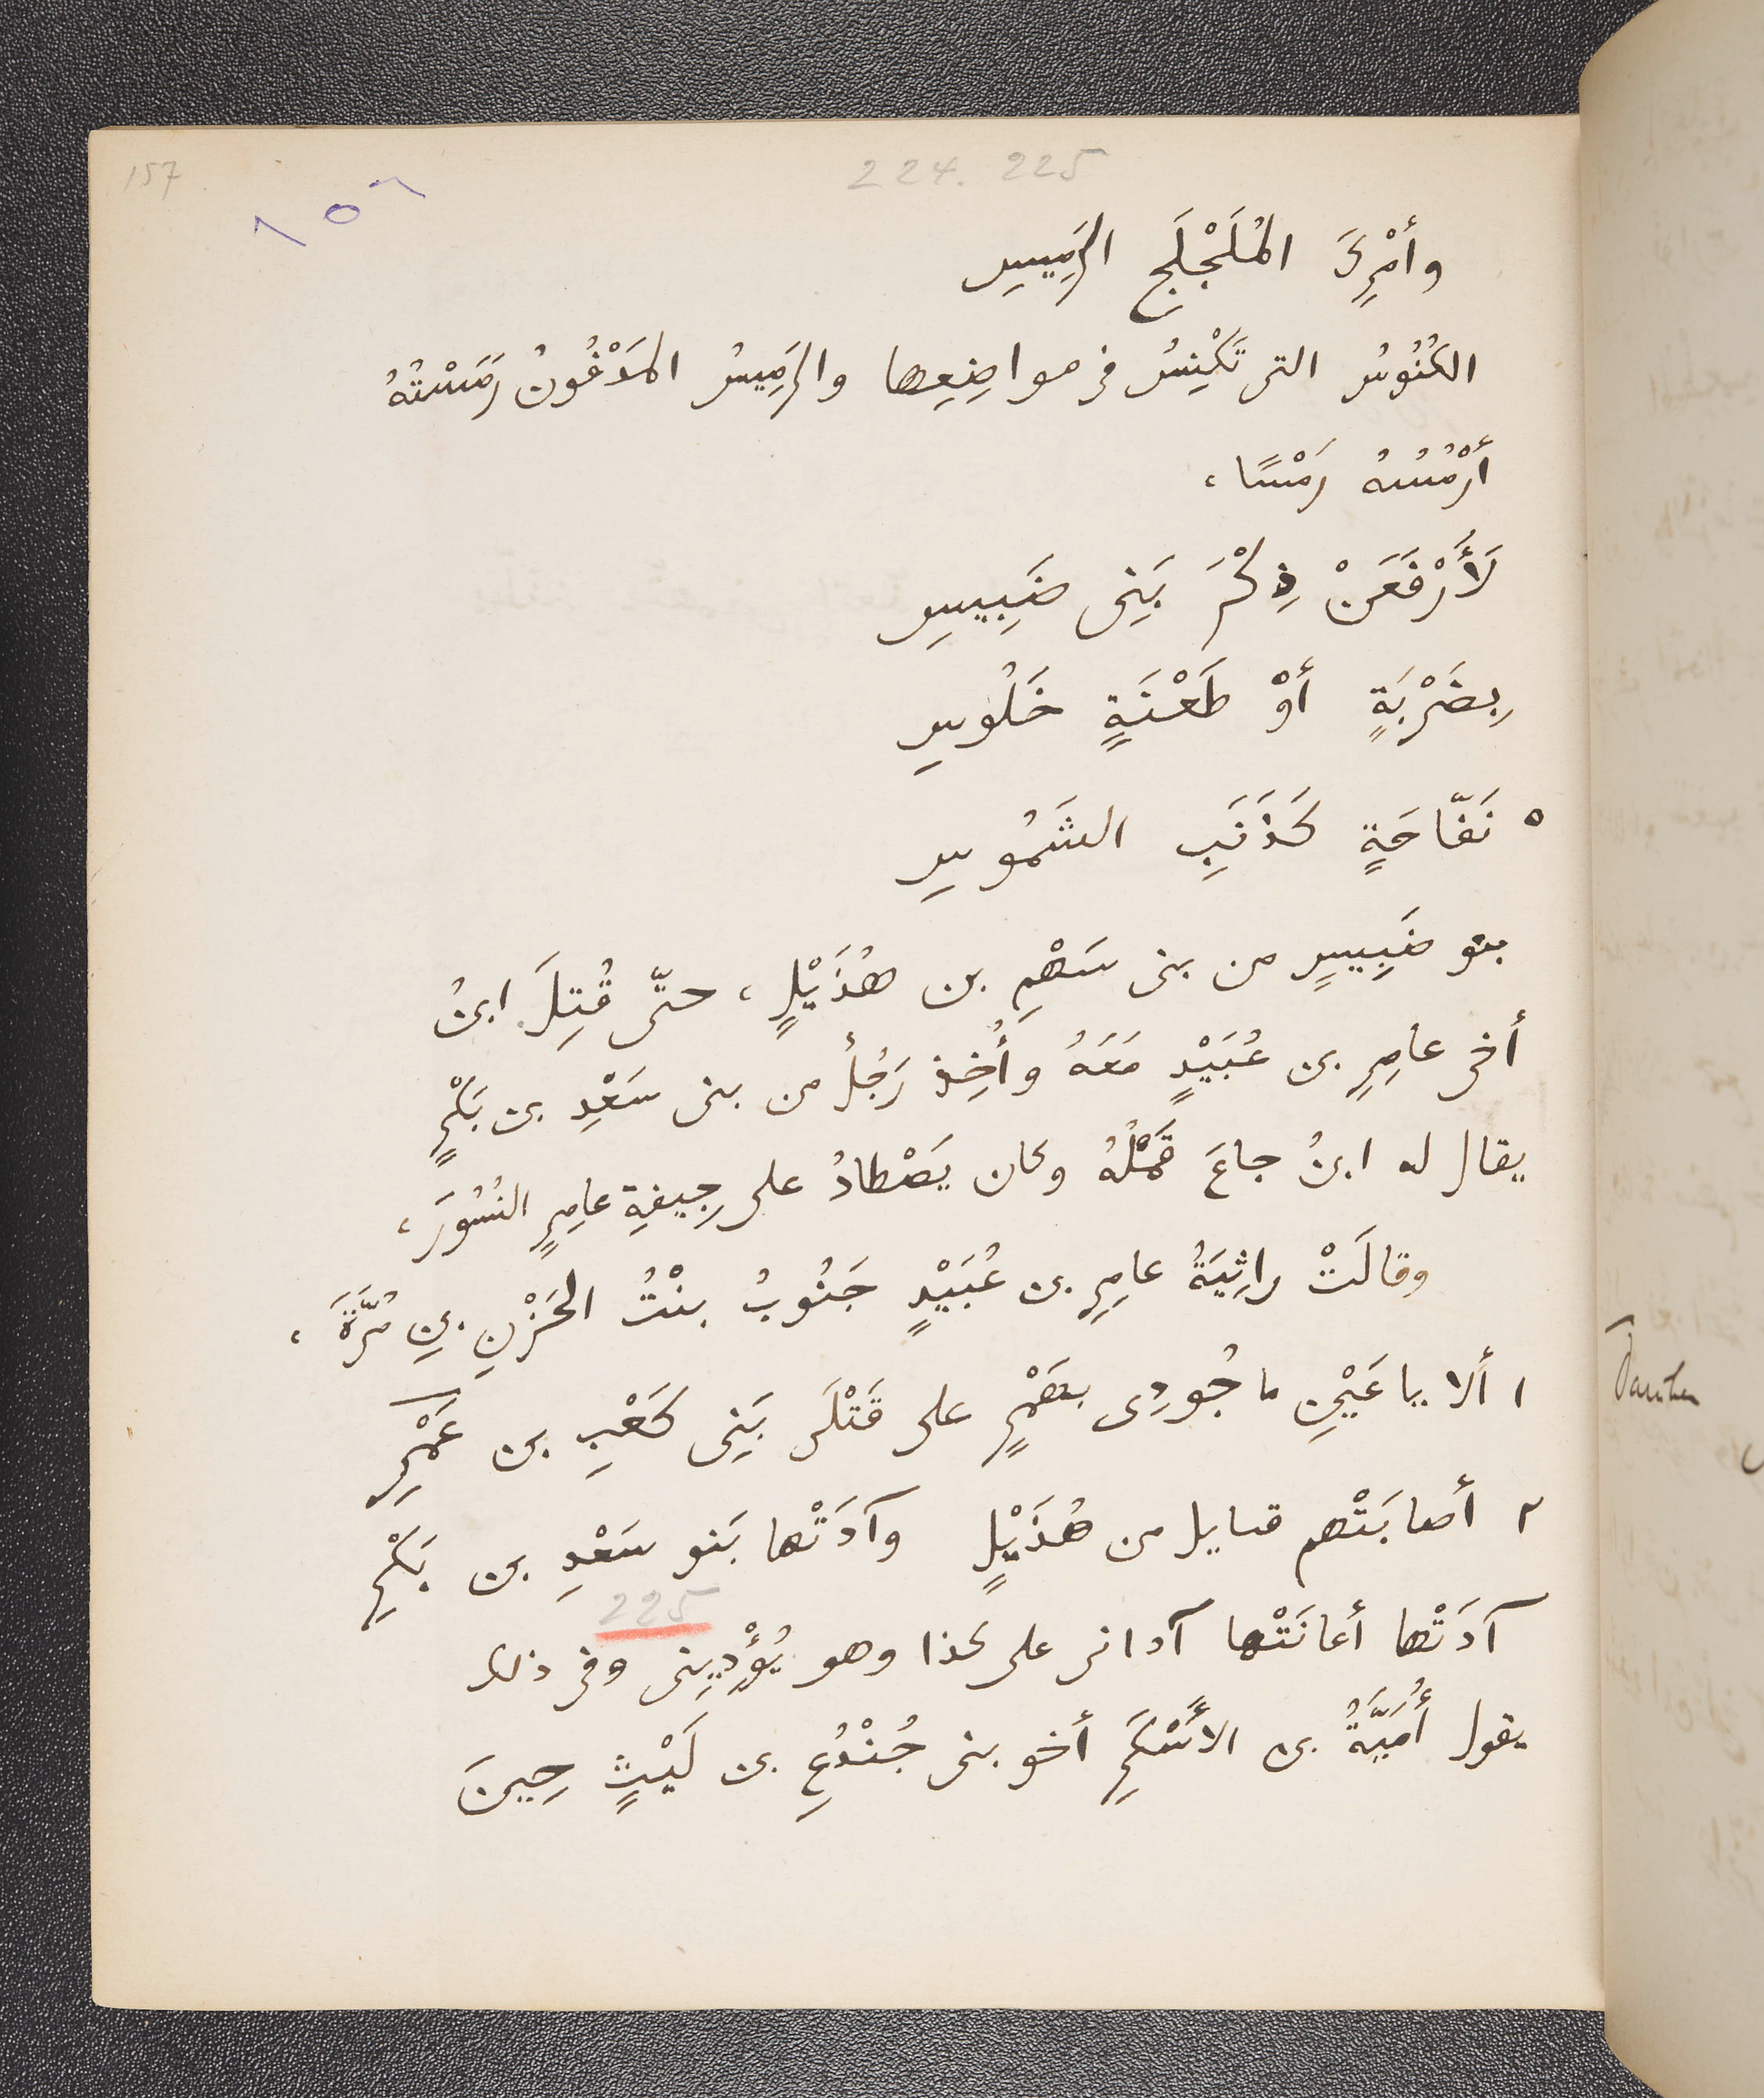 157
١٥٦
224. 225
وأَمْرِكَ المُلَجْلَجِ الرَمِيسِ
الكُنُوسُ التى تَكْنِسُ فى مواضِعِها والرَمِيسُ المَدْفُونُ رَمَسْتُهُ
أَرْمُسُهُ رَمْسًا،
لَأَرْفَعَنْ ذِكْرَ بَنِى ضَبِيسِ
بِضَرْبَةٍ أَوْ طَعْنَةٍ خَلُوسِ
٥ نَفّاحَةٍ كَذَنَبِ الشَمُوسِ
بنو ضَبِيسٍ من بنى سَهْمِ بن هُذَيْلٍ، حتّى قُتِلَ ابنُ
أخى عامِرِ بن عُبَيْدٍ مَعَهُ وأُخِذ رَجُلٌ من بنى سَعْدِ بن بَكْرٍ
يقال له ابنُ جاعَ قَمْلُهُ وكان يَصْطادُ على جِيفةِ عامِرٍ النُسُورَ،
وقالَتْ راثِيَةُ عامِرِ بن عُبَيْدٍ جَنُوبُ بنْتُ الحَزْنِ بنِ مُرَّةَ،
١ ألا يا عَيْنِ ما جُودِى بغَمْرٍ على قَتْلَى بَنِى كَعْبِ بن عَمْرِ
٢ أصابَتْهم قبايل من هُذَيْلٍ وآدَتْها بَنو سَعْدِ بن بَكْرِ
225
آدَتْها أعانَتْها آدانى على كذا وهو يُؤْدِينى وفى ذلك
يقول أُمَيَّةُ بن الأَسْكَرِ أخو بنى جُنْدُعِ بن لَيْثٍ حِينَ